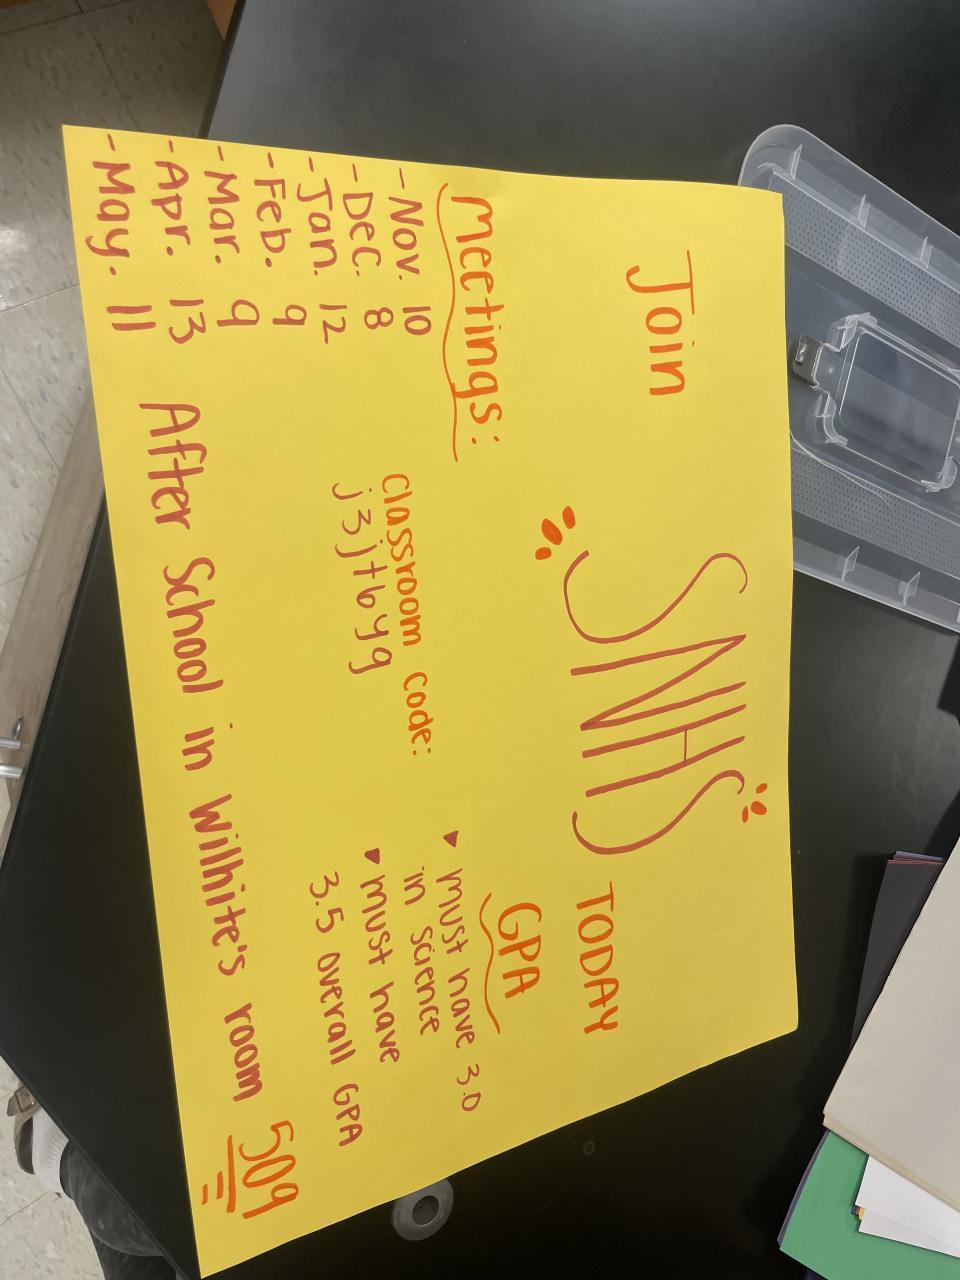 Join
SNHS
TODAY
Meetings:
- Nov. 10
- Dec. 8
- Jan. 12
- Feb. 9
- Mar. 9
- Apr. 13
- May. 11
Classroom code:
j3jtbyg
GPA
▾ must have 3.0
in science
▾ must have
3.5 overall GPA
After School in Wilhite's room 509